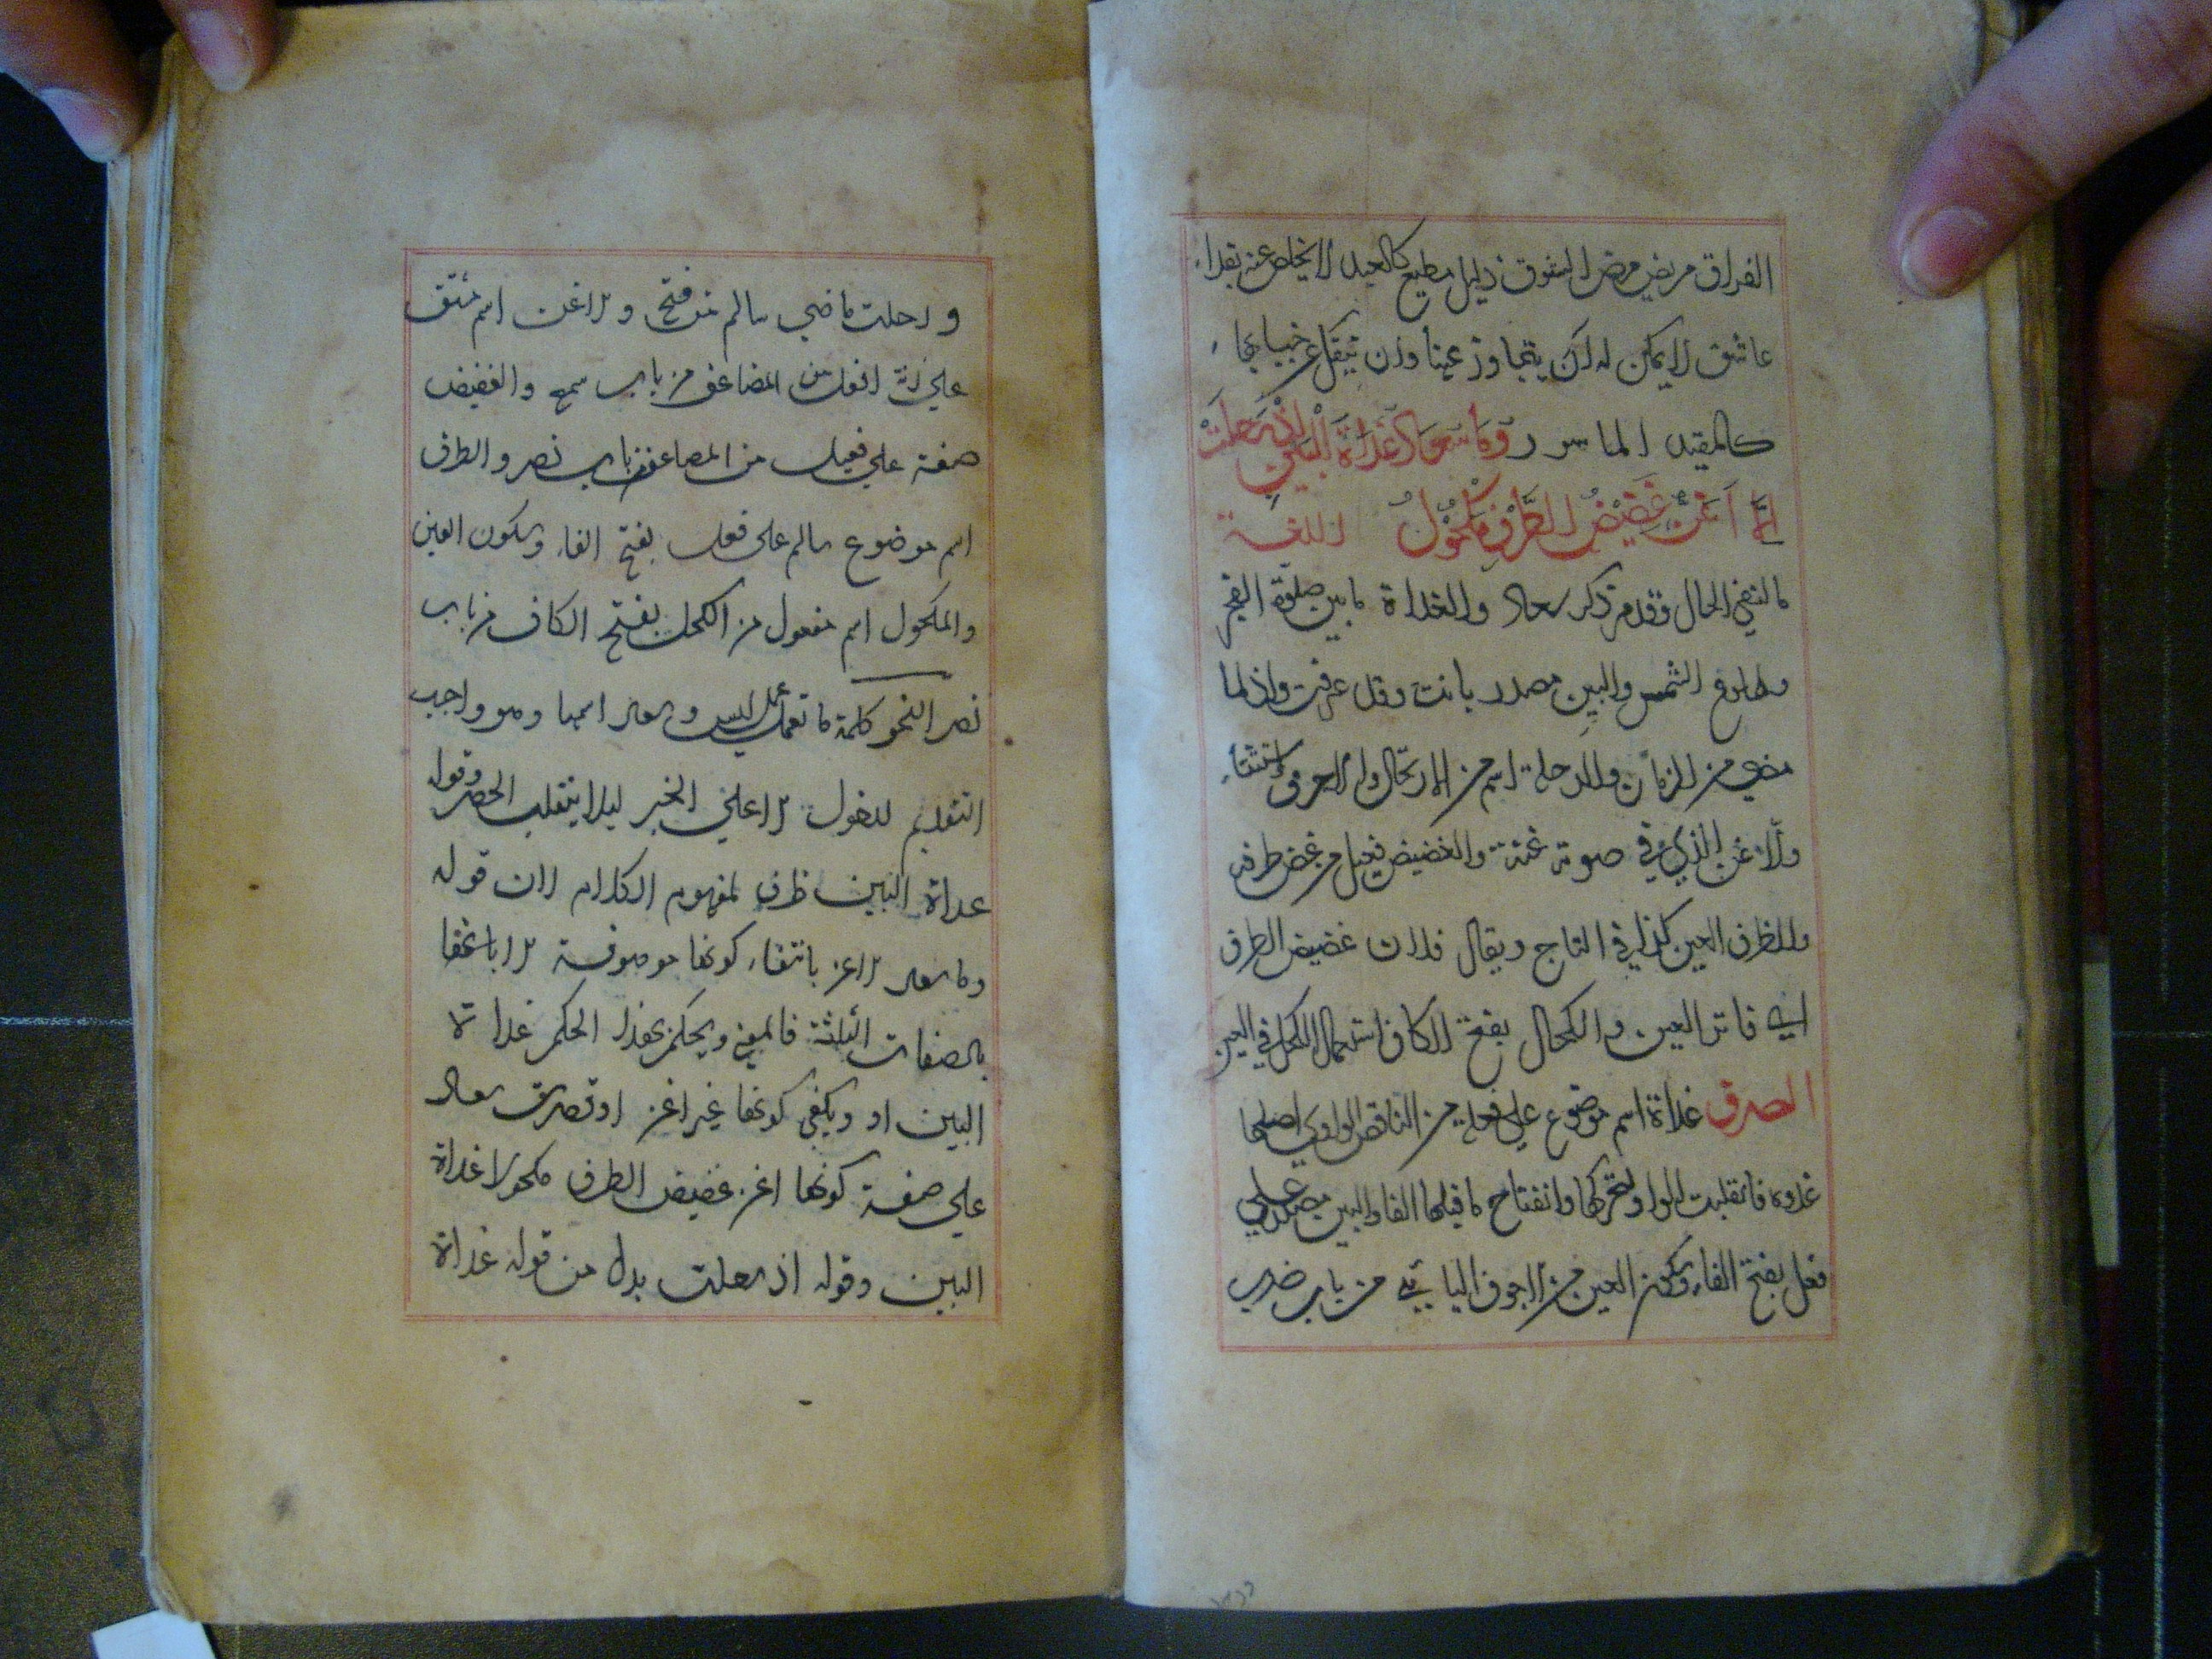 الفراق مريض مرض الشوق ذليل مطيع كالعبد لا يخلص عنه بفداء
عاشق لا يمكن له ان يتجاوز عينا وان ينتقل عن خيبائها
كالمقيد الماسور وَمَا سُعَادُ غَدَاةَ الْبَيْنِ اِذْ رَحَلَتْ
اِلَّا اَغَنُّ غَضِيْضُ الطَّرْفِ مَكْحُوْلُ اللغة
ما لنفي الحال وقد مر ذكر سعاد والغداة ما بين صلوة الفجر
وطلوع الشمس والبين مصدر بانت وقد عرفت واذ لما
مضي من الزمان والرحلة اسم من الارتحال والا حرف استثناء
والاغن الذي في صوته غنة والغضيض فعيل من غض طرفه
والطرف العين كذا في التاج ويقال فلان غضيض الطرف
اي فاتر العين والكحال بفتح الكاف استعمال الكحل في العين
الصرف غداة اسم موضوع علي فعلة من الناقص الواوي اصلها
غدوة فانقلبت الواو لتحركها وانفتاح ما قبلها الفا والبين مصدر علي
فعل بفتح الفاء وسكون العين من الاجوف اليائي من باب ضرب
و رحلت ماضي سالم من فتح و لاغن اسم مشتق
علي زنة افعل من المضاعف من باب سمع والغضيض
صفة علي فعيل من المضاعف من باب نصر والطرف
اسم موضوع سالم علي فعل بفتح الفاء وسكون العين
والمكحول اسم مفعول من الكحل بفتح الكاف من باب
نصر النحو كلمة ما تعمل عمل ليس و سعاد اسمها وهو واجب
التقديم لدخول الا علي الخبر ليلا ينقلب الحصر وقوله
غداة البين ظرف لمفهوم الكلام لان قوله
وما سعاد الا اغن بانتفاء كونها موصوفة الا باتخفا
بالصفات الثلثة فالمعني ويحكم بهذا الحكم غداة
البين او ويكفي كونها غير اغن او تصدق سعاد
علي صفة كونها اغن غضيض الطرف مكحولا غداة
البين وقوله اذ رحلت بدل من قوله غداة